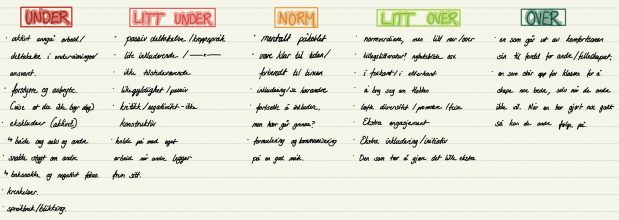 UNDER
· aktivt unngå arbeid/
deltakelse i undervisningen/
ansvar.
· forstyrre og avbryte.
(vise at du ikke bryr deg)
· ekskluderer (aktivt)
↳ både seg selv og andre
· snakke stygt om andre
↳ baksnakke og negativt fokus
· krenkelser.
· språkbruk/blikking.
LITT UNDER
· passiv deltakelse/kroppsspråk
· lite inkluderende /
· ikke tilstedeværende
· likegyldighet/passiv
· kritikk/negativitet - ikke
konstruktiv
· holde på med eget
arbeid når andre legger
frem sitt.
NORM
· mentalt påkoblet
· være klar til tiden/
forberedt til timen
· inkludering/se hverandre
· fortsette å inkludere,
men hvor går grensen?
· formulering og kommunisering
på en god måte.
LITT OVER
· normverdiene, men litt mer/over
· tilleggslitteratur? nyhetsbilde osv
· i forkant/i etterkant
· å bry seg en
· løfte diversitet/
· Ekstra engasjement
· Ekstra inkludering/initiativ
· Den som tør å gjøre det lille ekstra
OVER
· en som går ut av komfortsonen
sin til fordel for andre/fellesskapet.
· en som står opp for klassen for å
skape noe bedre, selv når de andre
ikke vil. Når en har gjort noe godt
så kan de andre følge på.